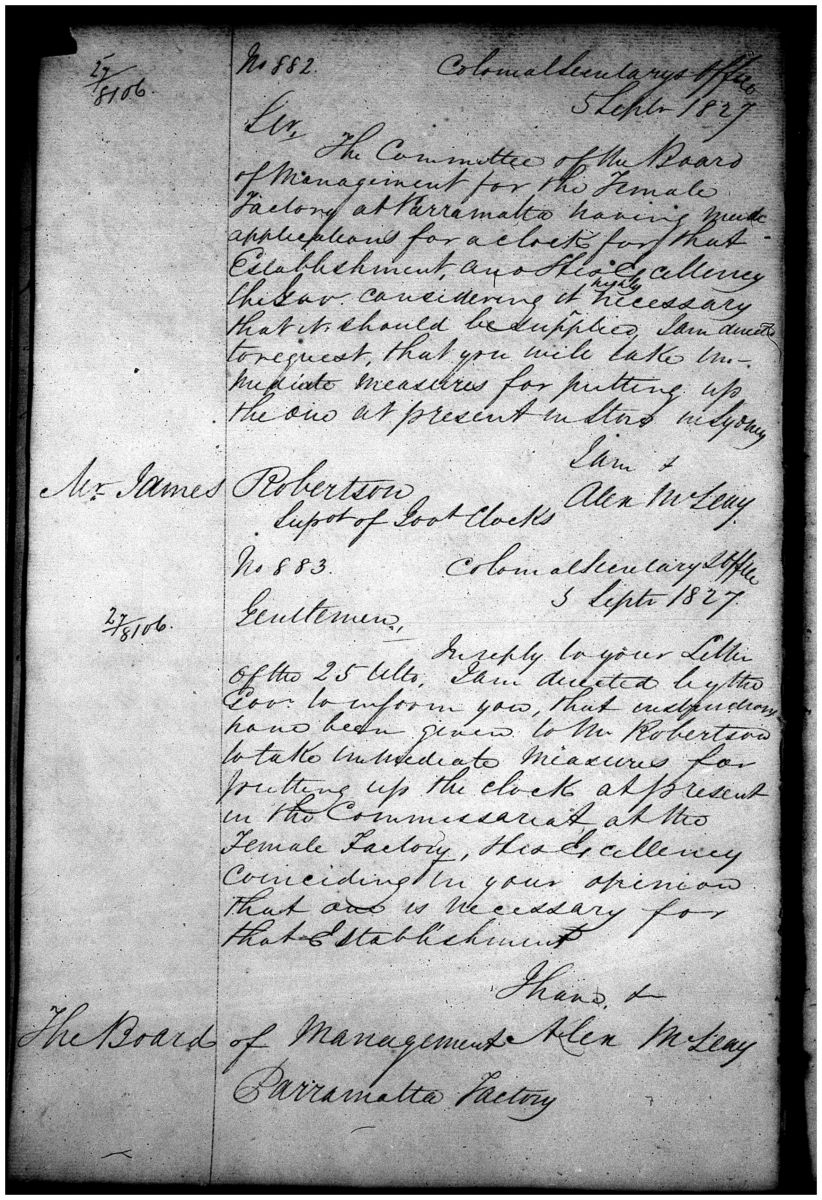 27/8106.
No 882. Colonial Secretarys Office
5 Septr 1827
Sir,
The Committee of the Board
of Management for the Female
Factory at Parramatta having made
applications for a clock for that
Establishment, and His Excellency
the Gov. considering it highly necessary
that it should be supplied, I am directed
to request, that you will take im-
mediate measures for putting up
the one at present in Store in Sydney
I am &
Alex McLeay.
Mr. James Robertson
Supdt of Govt Clocks
No 883. Colonial Secretarys Office
5 Septr 1827.
27/8106.
Gentlemen,
In reply to your Letter
of the 25 Ulto, I am directed by the
Govr. to inform you, that instructions
have been given to Mr Robertson
to take immediate measures for
putting up the clock at present
in the Commissariat, at the
Female Factory, His Excellency
coinciding in your opinion
that one is necessary for
that Establishment
I have, &
The Board of Management Alex McLeay
Parramatta Factory